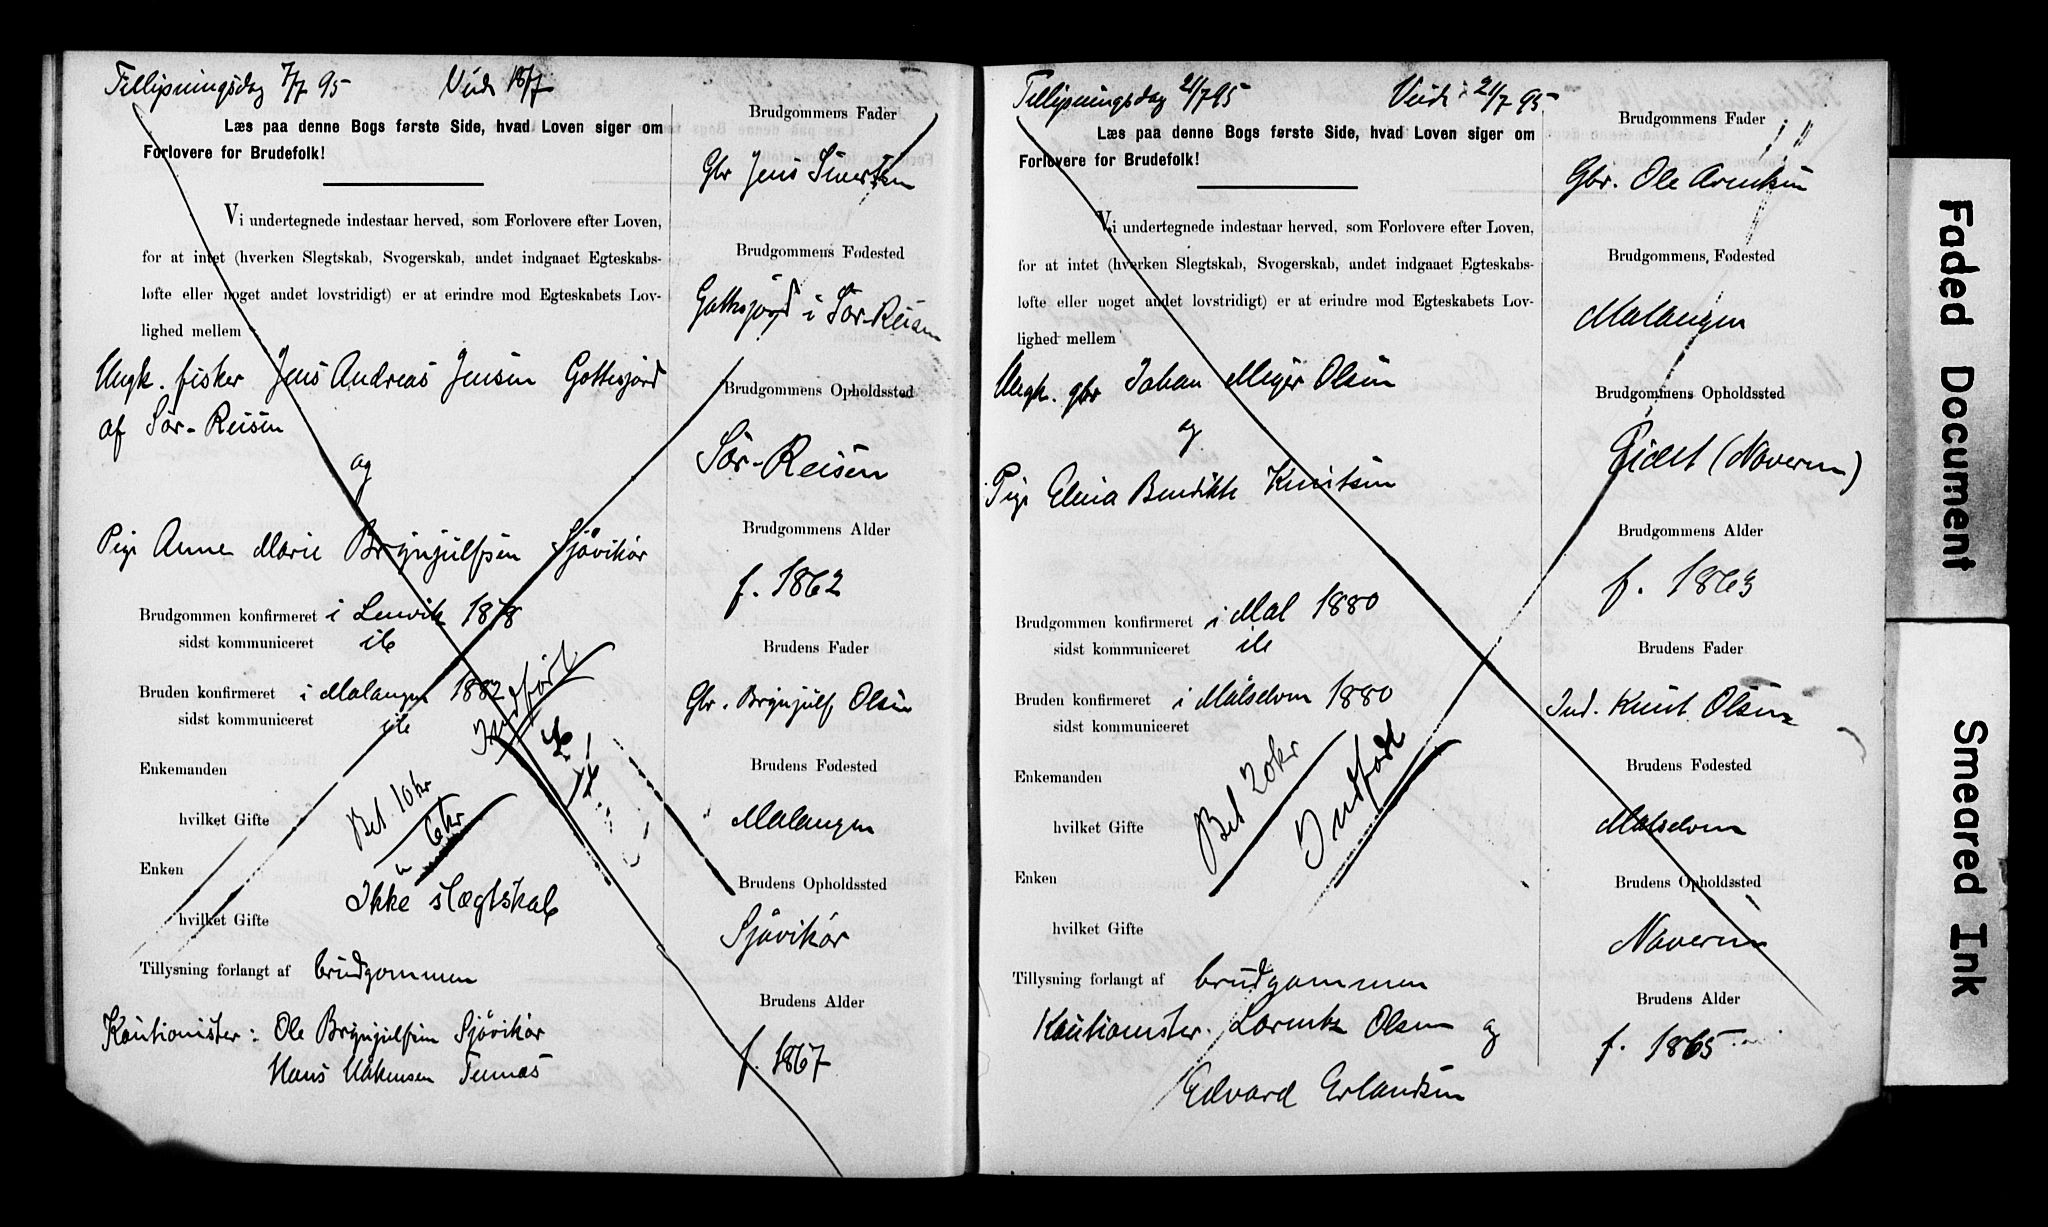 Tillysningsdag 7/7 95 Viede 18/7
Læs paa denne Bogs første Side, hvad Loven siger om
Forlovere for Brudefolk!
Vi undertegnede indestaar herved, som Forlovere efter Loven,
for at intet (hverken Slegtskab, Svogerskab, andet indgaaet Egteskabs-
løfte eller noget andet lovstridigt) er at erindre mod Egteskabets Lov-
lighed mellem
Ungk. fisker Jens Andreas Jensen Gottesjord
af Sør-Reisen
og
Pige Anne Marie Brynjulfsen Sjøvikør
Brudgommen konfirmeret i Lenvik 1878
sidst kommuniceret ib
Bruden konfirmeret i Malangen 1882
sidst kommuniceret ib
Indført
Enkemanden
hvilket Gifte
Bet. 10 kr
6 kr
Enken
Ikke slægtskab
hvilket Gifte
Tillysning forlangt af brudgommen
Kautionister: Ole Brynjulfsen Sjøvikør
Hans Håkensen
Brudgommens Fader
Gbr Jens Sivertsen
Brudgommens Fødested
Gottesjord i Sør-Reisen
Brudgommens Opholdssted
Sør-Reisen
Brudgommens Alder
f. 1862
Brudens Fader
Gbr. Brynjulf Olsen
Brudens Fødested
Malangen
Brudens Opholdssted
Sjøvikør
Brudens Alder
f. 1867
Tillysningsdag 21/7 95 Viede 21/7 95
Læs paa denne Bogs første Side, hvad Loven siger om
Forlovere for Brudefolk!
Vi undertegnede indestaar herved, som Forlovere efter Loven,
for at intet (hverken Slegtskab, Svogerskab, andet indgaaet Egteskabs-
løfte eller noget andet lovstridigt) er at erindre mod Egteskabets Lov-
lighed mellem
Ungk. gbr Johan Meyer Olsen
og
Pige Elena Bendikte Knutsen
Brudgommen konfirmeret i Mal 1880
sidst kommuniceret ib
Bruden konfirmeret i Målselven 1880
sidst kommuniceret
Enkemanden
Bet 20 kr
Indført
hvilket Gifte
Enken
hvilket Gifte
Tillysning forlangt af brudgommen
Kautionister. Lorentz Olsen og
Edvard Erlandsen
Brudgommens Fader
Gbr. Ole Arentsen
Brudgommens Fødested
Malangen
Brudgommens Opholdssted
Eidet (Naveren)
Brudgommens Alder
f. 1863
Brudens Fader
Ind. Knut Olsen
Brudens Fødested
Målselven
Brudens Opholdssted
Naveren
Brudens Alder
f. 1865
Faded Document
Smeared Ink